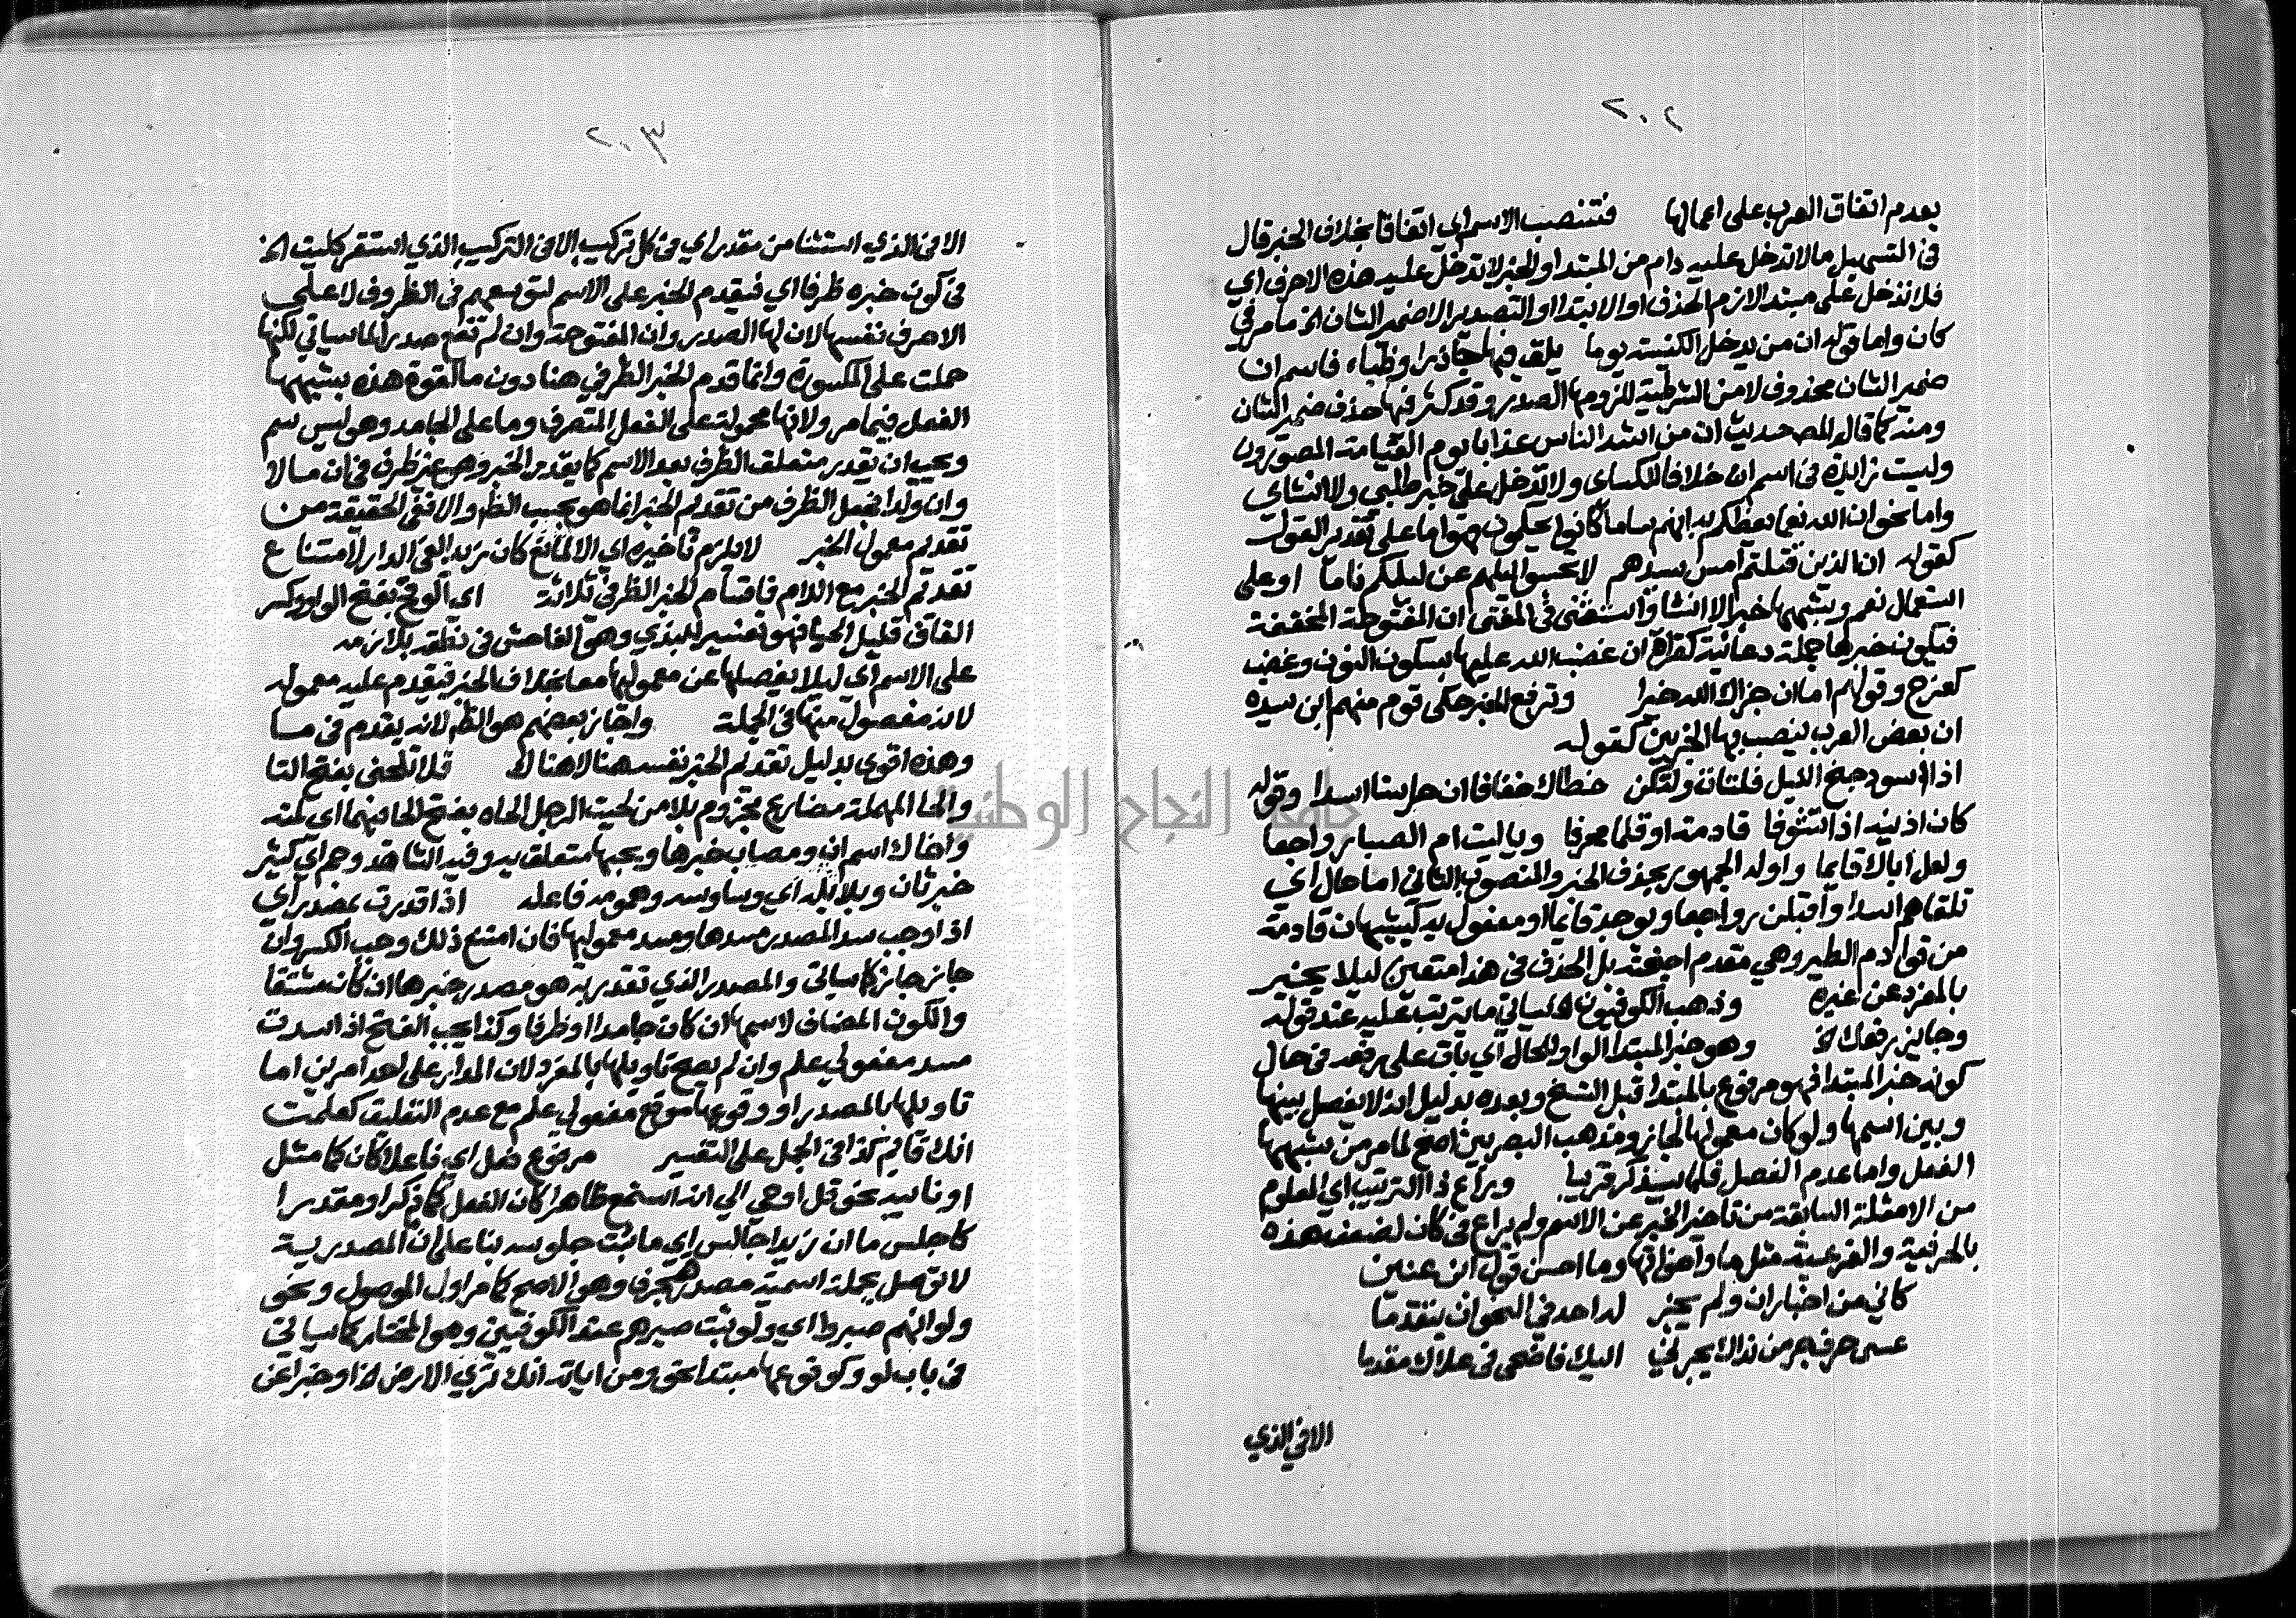 ٢٠٢
بعدم اتفاق العرب على اعمالها فتنصب الاسم اي اتفاقا بخلاف الخبر قال
في التسهيل ما لا تدخل عليه دام من المبتدا والخبر لا تدخل عليه هذه الاحرف اي
فلا تدخل على مبتدا لازم الحذف او الابتدا او التصدير الا ضمير الشان الخ ما مر في
كان واما قوله ان من يدخل الكنيسة يوما يلق فيها جاذرا وظباء فاسم ان
ضمير الشان محذوف لا من الشرطية للزومها الصدر وقد كثر فيها حذف ضمير الشان
ومنه كما قاله المص حديث ان من اشد الناس عذابا يوم القيامة المصورون
وليت زايدة في اسم ان خلافا للكساى ولا تدخل على خبر طلبي ولا انشاى
واما نحو ان الله نعما يعظكم به انهم ساء ما كانوا يعملون فهو اما على تقدير القول
كقوله ان الذين قتلتم امس سيدهم لا تحسبوا ليلهم عن ليلكم ناما او على
استعمال نعم وشبهها خبرا لا انشا واستثنى في المغنى ان المفتوحة المخففة
فيكون خبرها جملة دعائية كقراة ان غضب الله عليها بسكون النون وغضب
كفرح وقولهم اما ان جزاك الله خيرا وترفع الخبر حكى قوم منهم ابن سيده
ان بعض العرب ينصب بها الجزءين كقوله
اذا اسود جنح الليل فلتات ولتكن خطاك خفافا ان حراسنا اسدا وقوله
كان اذنيه اذا تشوفا قادمة او قلما محرفا وياليت ايام الصبا رواجعا
ولعل اباك قايما واوله الجمهور بحذف الخبر والمنصوب الثاني اما حال اي
تلقاهم اسدا واقبلن رواجعا ويوجد قائما او مفعول به كيشبهان قادمة
من قوادم الطير وهي مقدم اجنحته بل الحذف في هذا متعين ليلا يخبر
بالمفرد عن غيره وذهب الكوفيون الخ سياتي ما يترتب عليه عند قوله
وجايز رفعك الخ وهو خبر المبتدا الواو للحال اي باق على رفعه في حال
كونه خبر المبتدا فهو مرفوع بالمبتدا قبل النسخ وبعده بدليل انه لا يفصل بينها
وبين اسمها ولو كان معمولها لجاز ومذهب البصريين اصح لما مر من شبهها
الفعل واما عدم الفصل فلما سيذكر قريبا وراع ذا الترتيب اي المعلوم
من الامثلة السابقة من تاخير الخبر عن الاسم ولم يراع في كان لضعف هذه
بالحرفية والفرعية مثل ما واخواتها وما احسن قول ابن عنين
كاني من اخبار ان ولم يجز له احد في النحو ان يتقدما
عسى حرف جر من نداك يجرني اليك فاضحى في علاك مقدما
الا في الذي
٢٠٣
الا في الذي استثنا من مقدر اي في كل تركيب الا في التركيب الذي استقر كليت الخ
في كون خبره ظرفا اي فيقدم الخبر على الاسم لتوسعهم في الظروف لا على
الاحرف نفسها لان لها الصدر وان المفتوحة وان لم تقع صدرا لما سياتي لكنها
حملت على المكسورة وانما قدم الخبر الظرفي هنا دون ما لقوة هذه بشبهها
الفعل فيما مر ولانها محمولة على الفعل المتصرف وما على الجامد وهو ليس سم
ويجب ان يقدر متعلق الظرف بعد الاسم كما يقدر الخبر وهو غير ظرف في ان مالا
وان ولدا فجعل الظرف من تقديم الخبر انما هو بحسب الظ والا ففي الحقيقة من
تقديم معمول الخبر لا يلزم تاخيره اي الا لمانع كان زيدا لفي الدار لامتناع
تقديم الخبر مع اللام فاقسام الخبر الظرفي ثلاثة اي الوقح بفتح الواو وكسر
القاف قليل الحيا فهو تفسير للبذي وهو الفاحش في نطقه بلازمه
على الاسم اي ليلا يفصلها عن معموليها معا بخلاف الخبر فيقدم عليه معموله
لانه مفصول منها في الجملة واجاز بعضهم هو الظ لانه يقدم في ما
وهذه اقوى بدليل تقديم الخبر نفسه هنا لا هناك فلا تلحنى بفتح التا
والحا المهملة مضارع مجزوم بلا من لحيت الرجل الحاه بفتح الحا فيهما اي لمته
واخاك اسم ان ومصاب خبرها وبحبها متعلق به وفيه الشاهد وجم اي كثير
خبر ثان وبلابله اي وساوسه وهمومه فاعله اذا قدرت بمصدر اي
اذا وجب سد المصدر مسدها ومسد معموليها فان امتنع ذلك وجب الكسر وان
جاز جاز كما سياتي والمصدر الذي تقدر به هو مصدر خبرها ان كان مشتقا
والكون المضاف لاسمها ان كان جامدا او ظرفا وكذا يجب الفتح اذا سدت
مسد مفعولي علم وان لم يصح تاويلها بالمفرد لان المدار على احد امرين اما
تاويلها بالمصدر او وقوعها موقع مفعولي علم مع عدم التعليق كعلمت
انك قايم كذا في الجمل على التفسير مرفوع فعل اي فاعلا كان كما مثل
او نايبه نحو قل اوحي الي انه استمع ظاهرا كان الفعل كما ذكر او مقدرا
كاجلس ما ان زيدا جالس اي ما ثبت جلوسه بنا على ان ما المصدرية
لا توصل بجملة اسمية مصدرة بحرف وهو الاصح كما مر اول الموصول ونحو
ولو انهم صبروا اي ولو ثبت صبرهم عند الكوفيين وهو المختار كما سياتي
في باب لو وكوقوعها مبتدا نحو ومن اياته انك ترى الارض الخ او خبرا عن